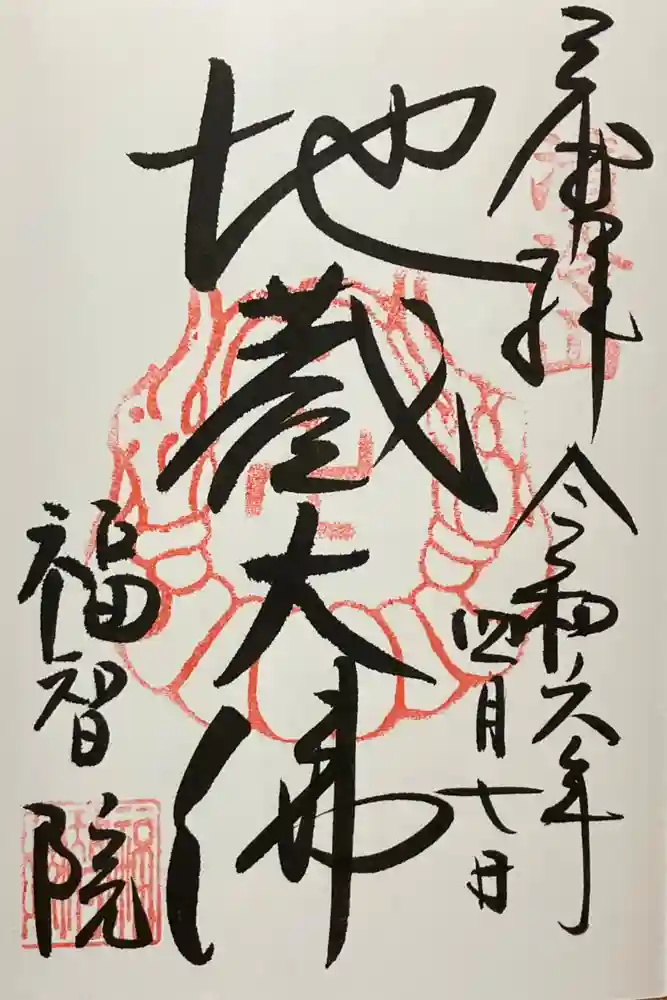 奉拝
令和六年
四月七日
地蔵大佛
福智院